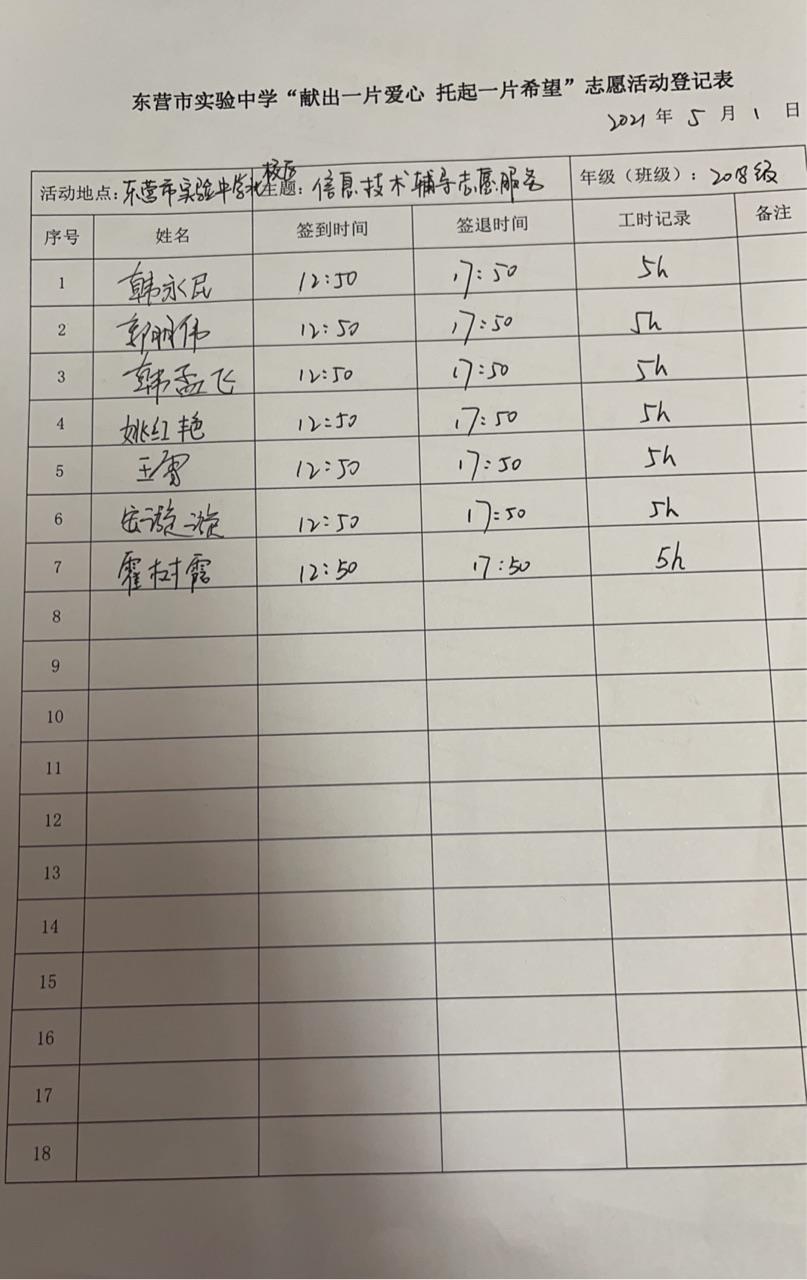 东营市实验中学“献出一片爱心 托起一片希望”志愿活动登记表
2021 年 5 月 1 日
活动地点：东营市实验中学北校区 主题：信息技术辅导志愿服务 年级（班级）：2018级
序号 姓名 签到时间 签退时间 工时记录 备注
1 韩永民 12:50 17:50 5h
2 郭鹏伟 12:50 17:50 5h
3 韩孟飞 12:50 17:50 5h
4 姚红艳 12:50 17:50 5h
5 王雷 12:50 17:50 5h
6 12:50 17:50 5h
7 霍树霞 12:50 17:50 5h
8
9
10
11
12
13
14
15
16
17
18